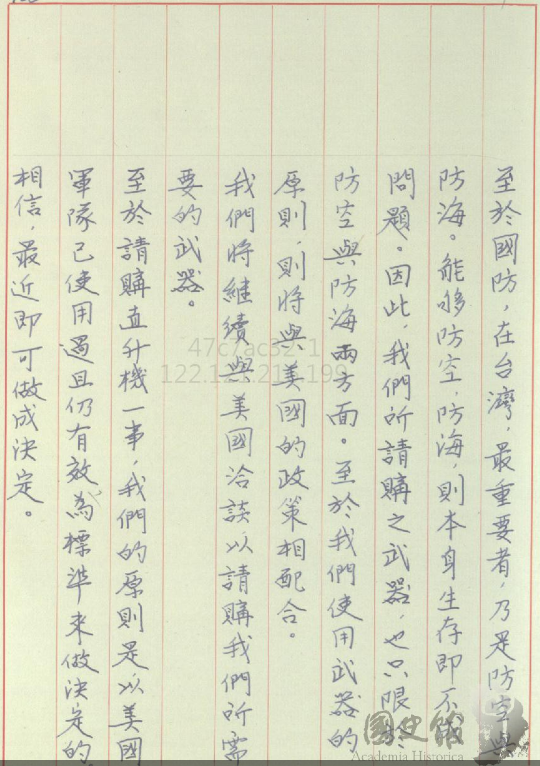 至於國防，在台灣，最重要者，乃是防空與
防海。能够防空，防海，則本身生存即不成
問題。因此，我們所請購之武器，也只限於
防空與防海兩方面。至於我們使用武器的
原則，則將與美國的政策相配合。
我們將繼續與美國洽談以請購我們所需
要的武器。
至於請購直升機一事，我們的原則是以美國
軍隊已使用過且仍有效為標準來做決定的
相信，最近即可做成決定。
122.12
國史館
Academia Historica